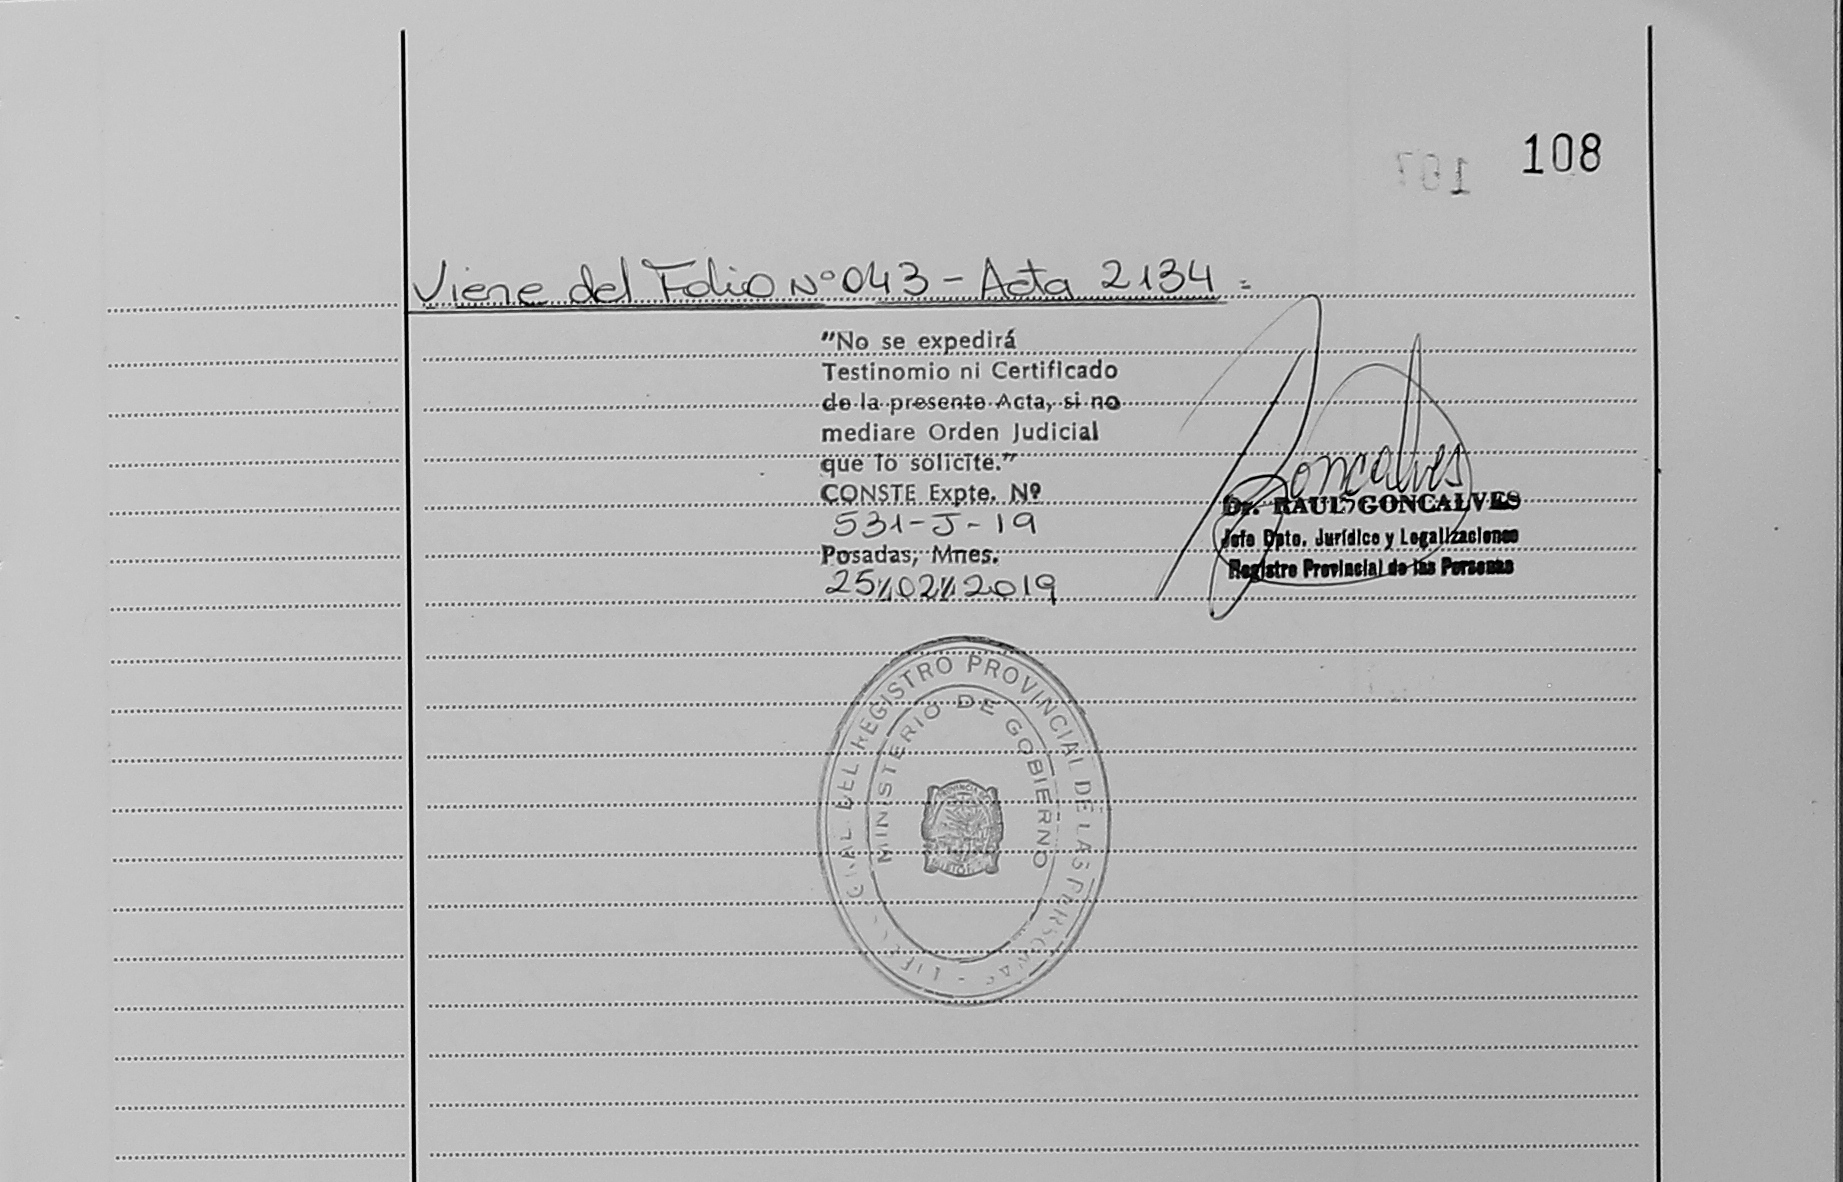 108
107
Viene del Folio Nº 043 - Acta 2134 =
"No se expedirá
Testinomio ni Certificado
de la presente Acta, si no
mediare Orden Judicial
que lo solicite."
CONSTE Expte. Nº
531-J-19
Posadas, Mnes.
25//02//2019
Goncalves
Dr. RAUL GONCALVES
Jefe Dpto. Jurídico y Legalizaciones
Registro Provincial de las Personas
GRAL. DEL REGISTRO PROVINCIAL DE LAS PERSONAS
MINISTERIO DE GOBIERNO